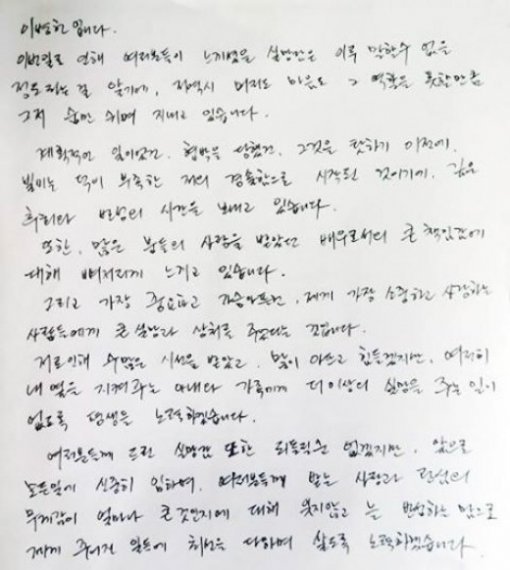 이병헌 입니다.
이번일로 인해 여러분들이 느끼셨을 실망감은 이루 말할수 없을
정도라는걸 알기에, 저역시 머리도 마음도 그 역할을 못할만큼
그저 숨만 쉬며 지내고 있습니다.
계획적인 일이었건, 협박을 당했건, 그것을 탓하기 이전에,
빌미는 덕이 부족한 저의 경솔함으로 시작된 것이기에, 깊은
후회와 반성의 시간을 보내고 있습니다.
또한, 많은 분들의 사랑을 받았던 배우로서의 큰 책임감에
대해 뼈저리게 느끼고 있습니다.
그리고 가장 중요하고 가슴아프는, 제게 가장 소중하고 사랑하는
사람들에게 큰 실망과 상처를 주었다는 것입니다.
저로인해 수많은 시선을 받았고, 많이 아프고 힘든겠지만, 여전히
내 옆을 지켜주는 아내와 가족에게 더이상의 실망을 주는 일이
없도록 평생을 노력하겠습니다.
여러분들께 드린 실망감 또한 되돌릴순 없겠지만, 앞으로
모든일에 신중히 임하며, 여러분들께 받는 사랑과 관심의
무게감이 얼마나 큰것인지에 대해 잊지않고 늘 반성하는 맘으로
제게 주어진 일들에 최선을 다하며 살도록 노력하겠습니다.